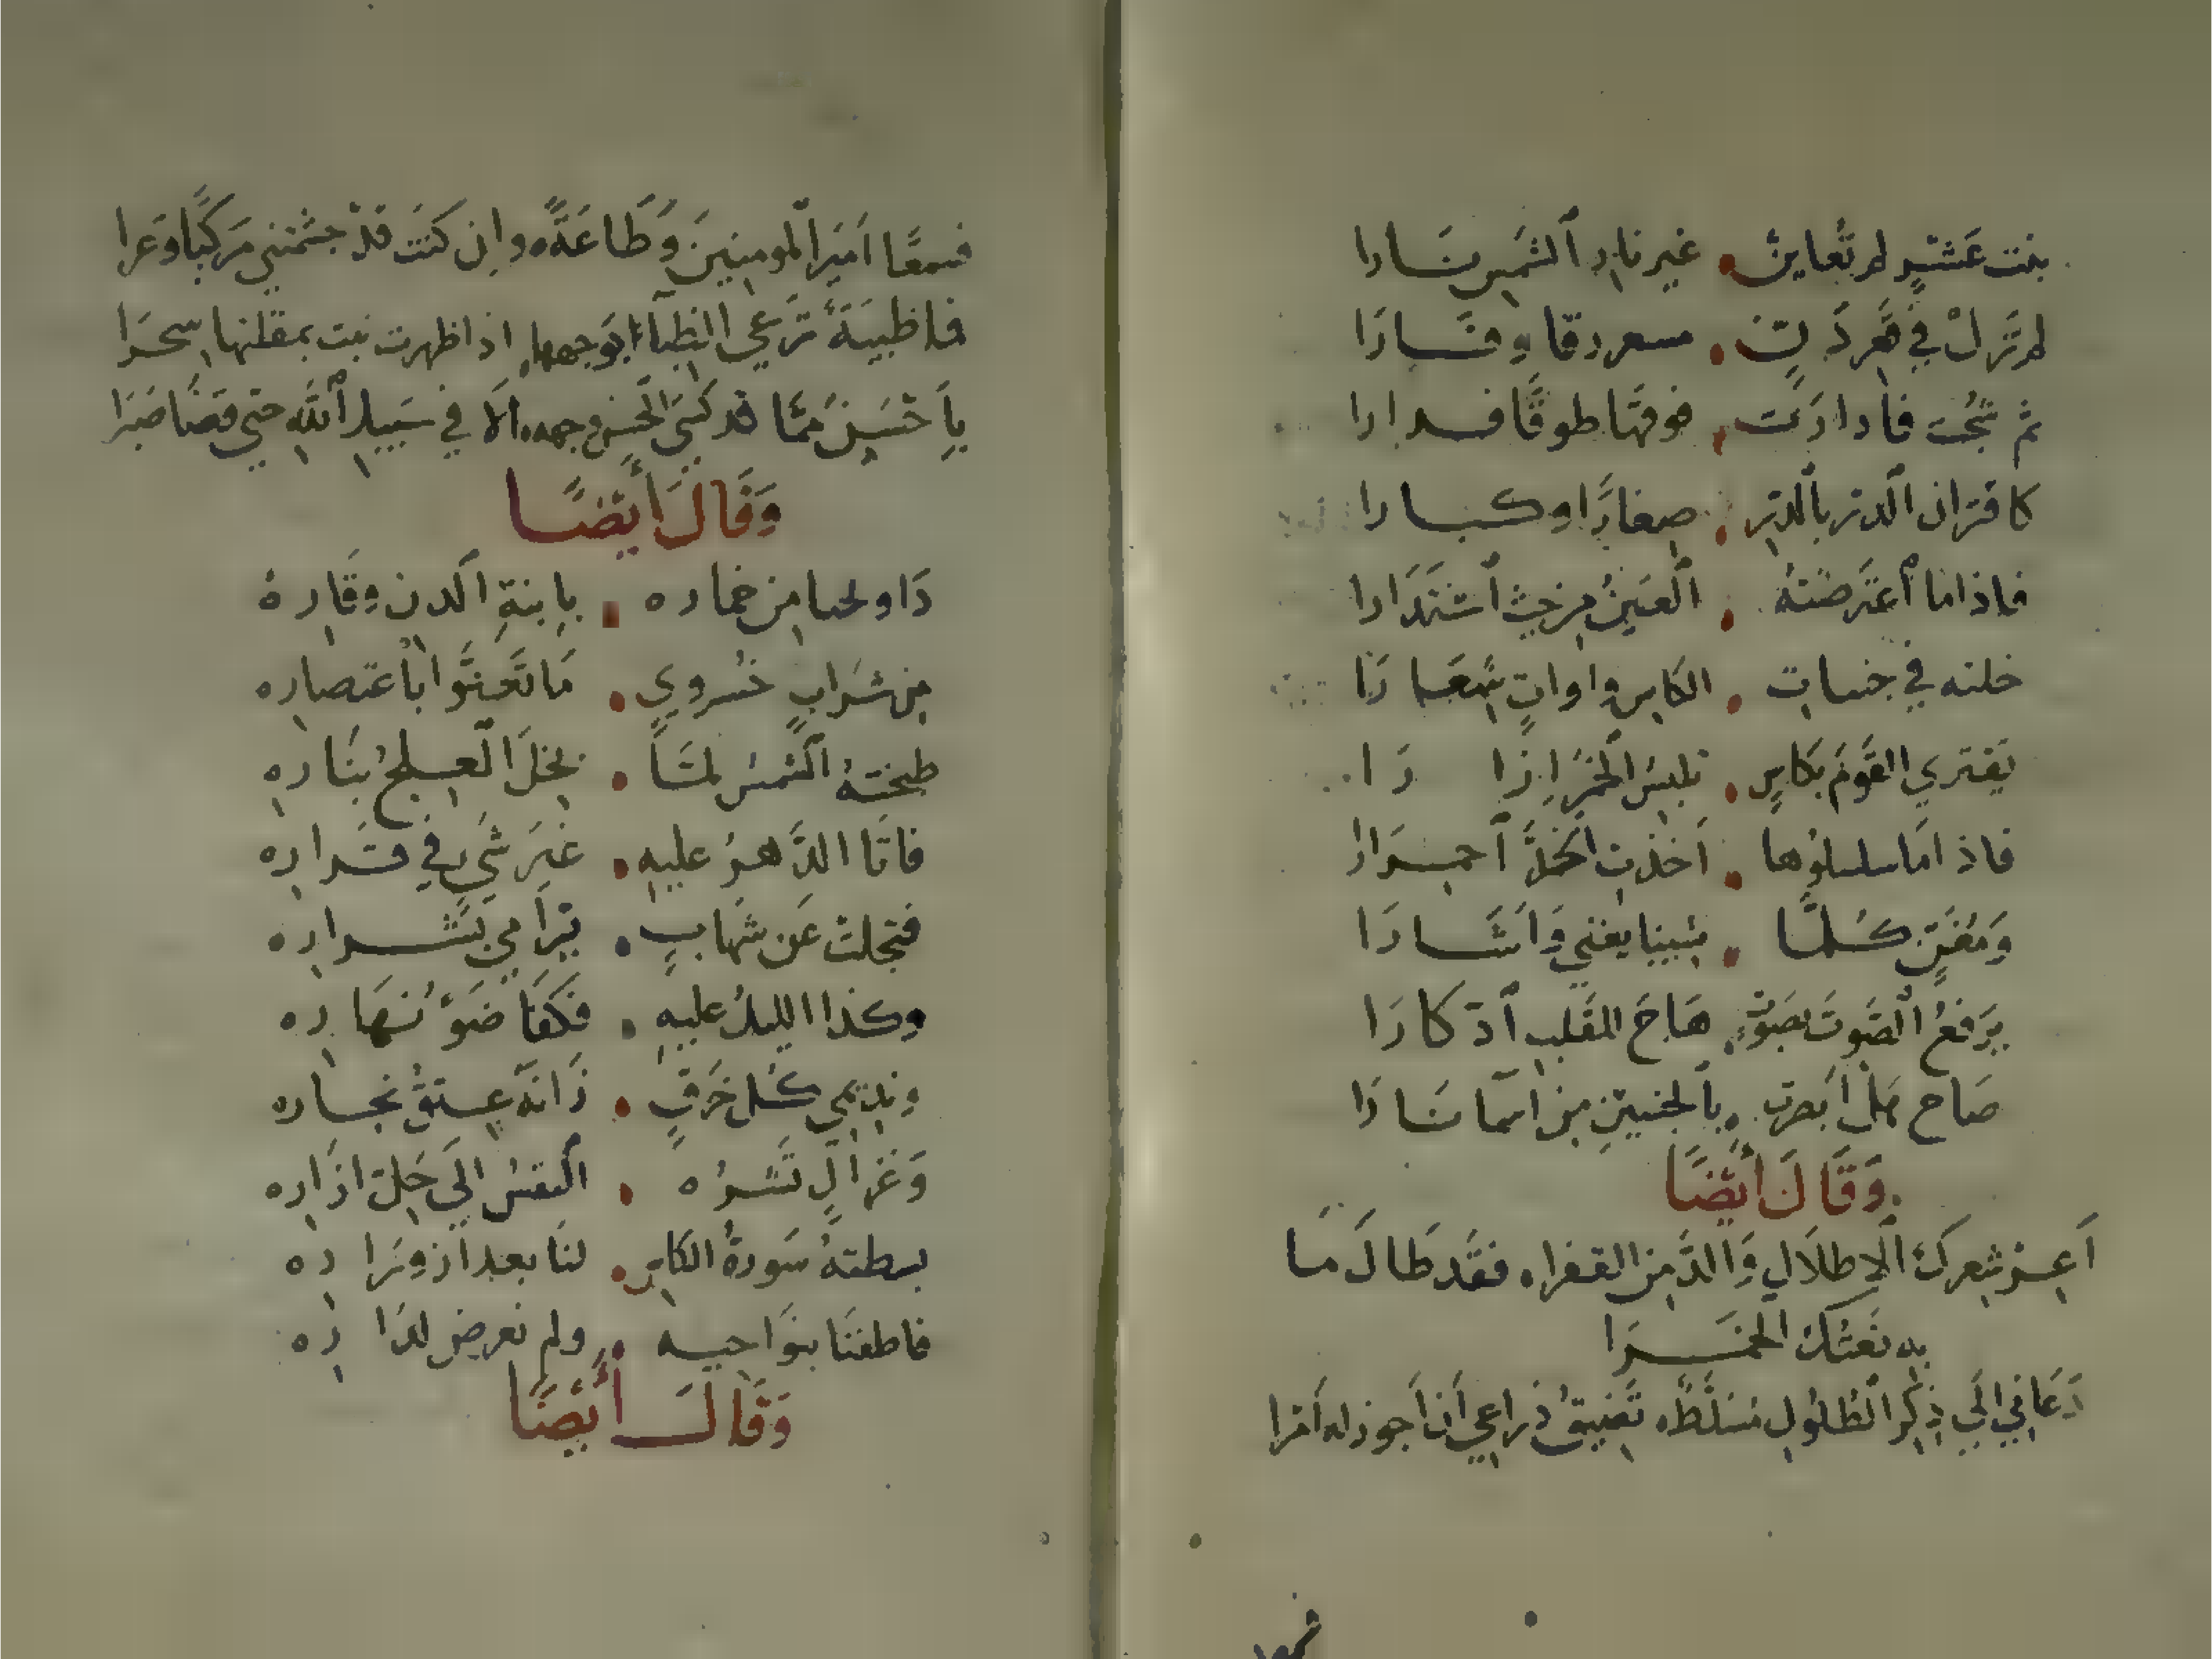 بنت عَشرٍ لم تُعاين غير نارِ ٱلشمسِ نَارا
لم تزلْ في قعر دَنٍ مسعر دقا وقَارَا
ثم شجت فادارَت فوقها طوقًا فدارا
كاقتران الدر بالدر صِغارًا وكبارا
فاذا ما ٱعترضتهُ ٱلعَينُ من حيث ٱستَدَارا
خلته في جنبات الكاس واواتٍ صِغَارَا
يَفتري القَومَ بكاسٍ تلبسُ الخمرَ إِزا رَا
فاذا مَا سلسلوُها اَخذت الخدَّ ٱحمرَارَا
وَمُغَنٍّ كُلمَّا شينا يغني وَاَشَارَا
يَرفعُ ٱلصَّوتَ بصَوتٍ هَاجَ للقَلبِ ٱدّكارَا
صَاح هل اَبصرت بٱلخبتينِ مِن اسمآ نَارَا
وَقَالَ أَيْضًا
اَعِرْ شِعرِكَ ٱلاطلاَلِ وَالدِّمنَ القفرا فقَد طَالَ مَا
به نَعتُكَ الخمرَا
دَعَاني الَي ذِكِر الطلوُلِ مُسَلَّطٌ تَضِيقُ ذراعي اَن اَجوز له اَمرا
فسمعًا اَميَر ٱلمومنِينَ وَطَاعَةً وان كنتَ قدْ جشمتني مَركبًا وَعرا
فما ظبيَةٌ تَرعي الظبآءَ بوجهها اذا ظهرت بمقلتها سِحرَا
بِاَحْسَنَ ممَّا قد كسَي الحُسنُ وجهه الا في سَبيلِ ٱللّهِ حتي قضَا صَبرَا
وَقَالَ أَيضًا
دَاو يحيا مِن خماره بِابنةِ الدن وقَارِهْ
مِن شَرابٍ خسروي مَا تَعنَّوا بٱعتصاره
طبختهُ ٱلشمسُ لمَّا بخلَ ٱلعلِجُ بنَاره
فاتَا الدَّهرُ عليهِ غيَر شَيٍ في قراره
فتجلتْ عَن شهابٍ يترَامي بشراره
وكذا الليلُ عليهِ فكفَا ضَوْءُ نهاره
ونديمي كُل خرقٍ زَانَهُ عِتقُ نجاره
وَغزالٍ تَشرهُ ٱلنفسُ اِلَي حَلِّ ازاره
بسطتهُ سَورةُ الكاسِ لنَا بعد ٱزورَاره
فاطفنَا بنوَاحيه ولم نعرض لدَاره
وَقَالَ أَيْضًا